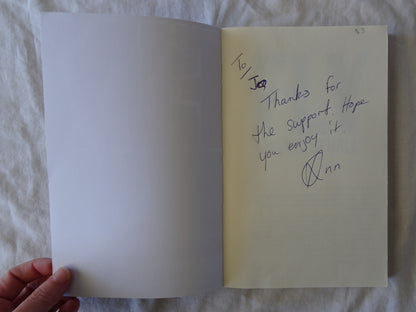 To/
Jo,
Thanks for
the support. Hope
you enjoy it.
Ann